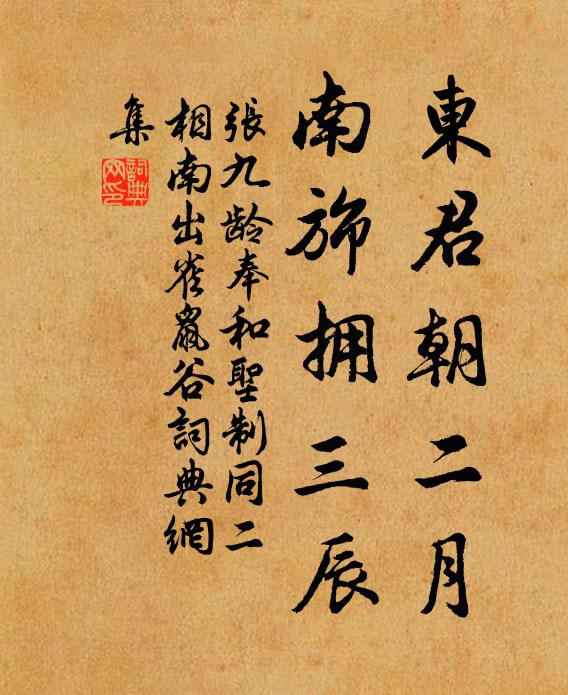 東君朝二月
南旆擁三辰
張九龄奉和聖制同二
相南出雀鼠谷詞典網
集
詞典
网印